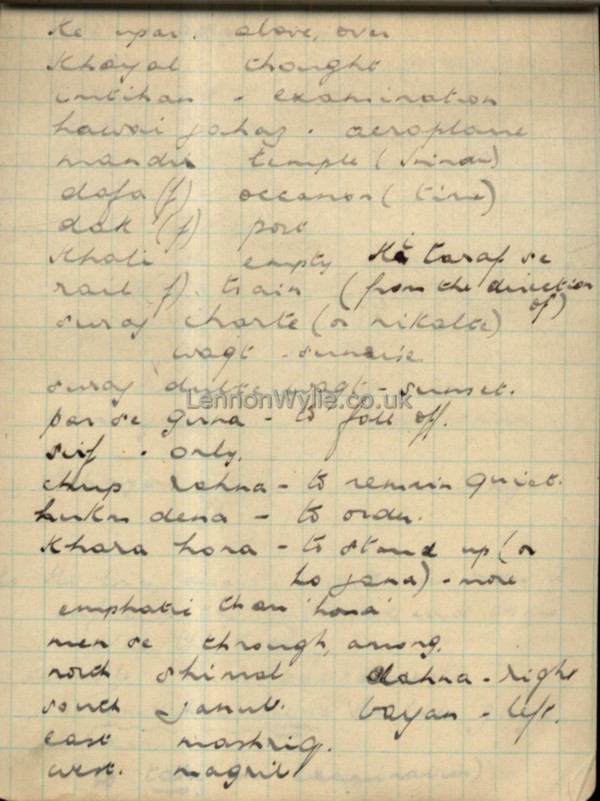 ke upar. above, over
Khayal thought
imtihan - examination
hawai jahaz. aeroplane
mandir temple (hindu)
dafa (f) occasion (time)
dak (f) post
Khali empty Ki taraf se
rail f). train (from the direction of)
suraj charte (or nikalte)
waqt - sunrise
suraj dubte waqt - sunset.
LennonWylie.co.uk
par se girna - to fall off.
sirf - only.
chup rahna - to remain quiet.
hukm dena - to order.
Khara hona - to stand up (or
ho jana) - more
emphatic than 'hona'
men se through, among.
north shimal dahna - right
south janub. bayan - left.
east mashriq.
west. magrib